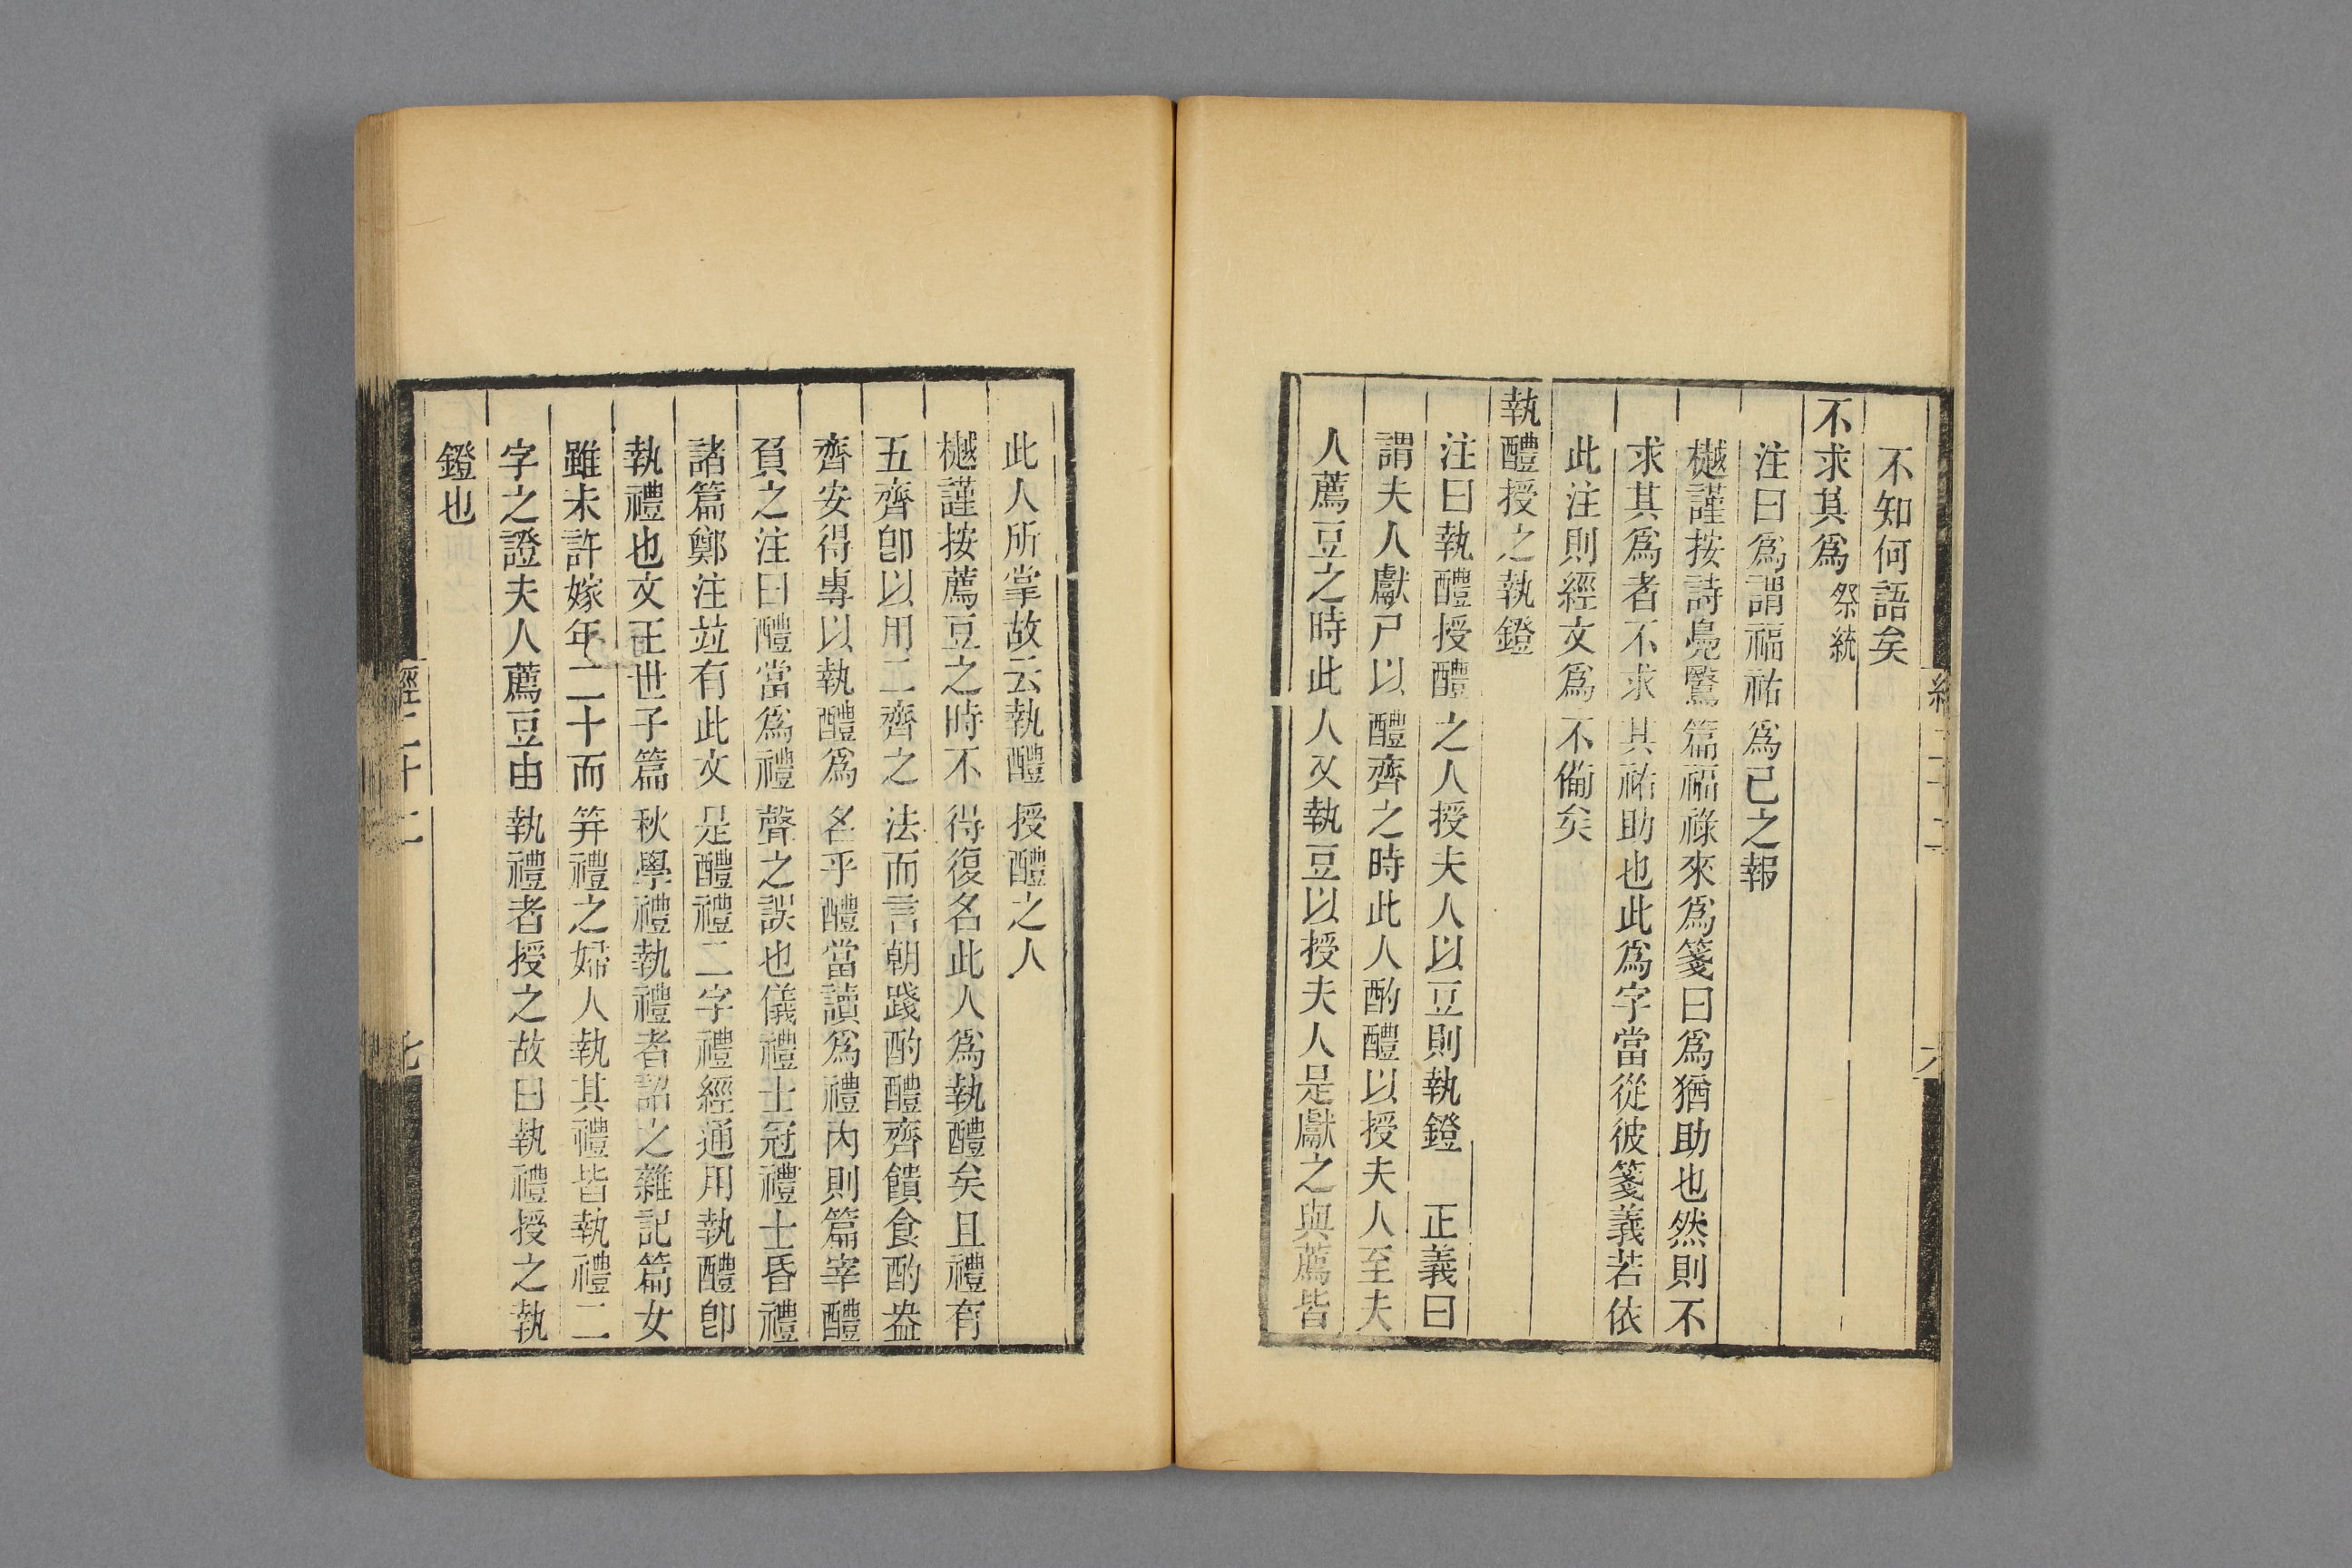 不知何語矣
不求其爲祭統
注曰爲謂福祐爲己之報
樾謹按詩鳧鷖篇福祿來爲箋曰爲猶助也然則不
求其爲者不求其祐助也此爲字當從彼箋義若依
此注則經文爲不備矣
執醴授之執鐙
注曰執醴授醴之人授夫人以豆則執鐙　正義曰
謂夫人獻尸以醴齊之時此人酌醴以授夫人至夫
人薦豆之時此人又執豆以授夫人是獻之與薦皆
此人所掌故云執醴授醴之人
樾謹按薦豆之時不得復名此人爲執醴矣且禮有
五齊卽以用二齊之法而言朝踐酌醴齊饋食酌盎
齊安得專以執醴爲名乎醴當讀爲禮內則篇宰醴
負之注曰醴當爲禮聲之誤也儀禮士冠禮士昏禮
諸篇鄭注竝有此文是醴禮二字禮經通用執醴卽
執禮也文王世子篇秋學禮執禮者詔之雜記篇女
雖未許嫁年二十而笄禮之婦人執其禮皆執禮二
字之證夫人薦豆由執禮者授之故曰執禮授之執
鐙也
經二十二
七